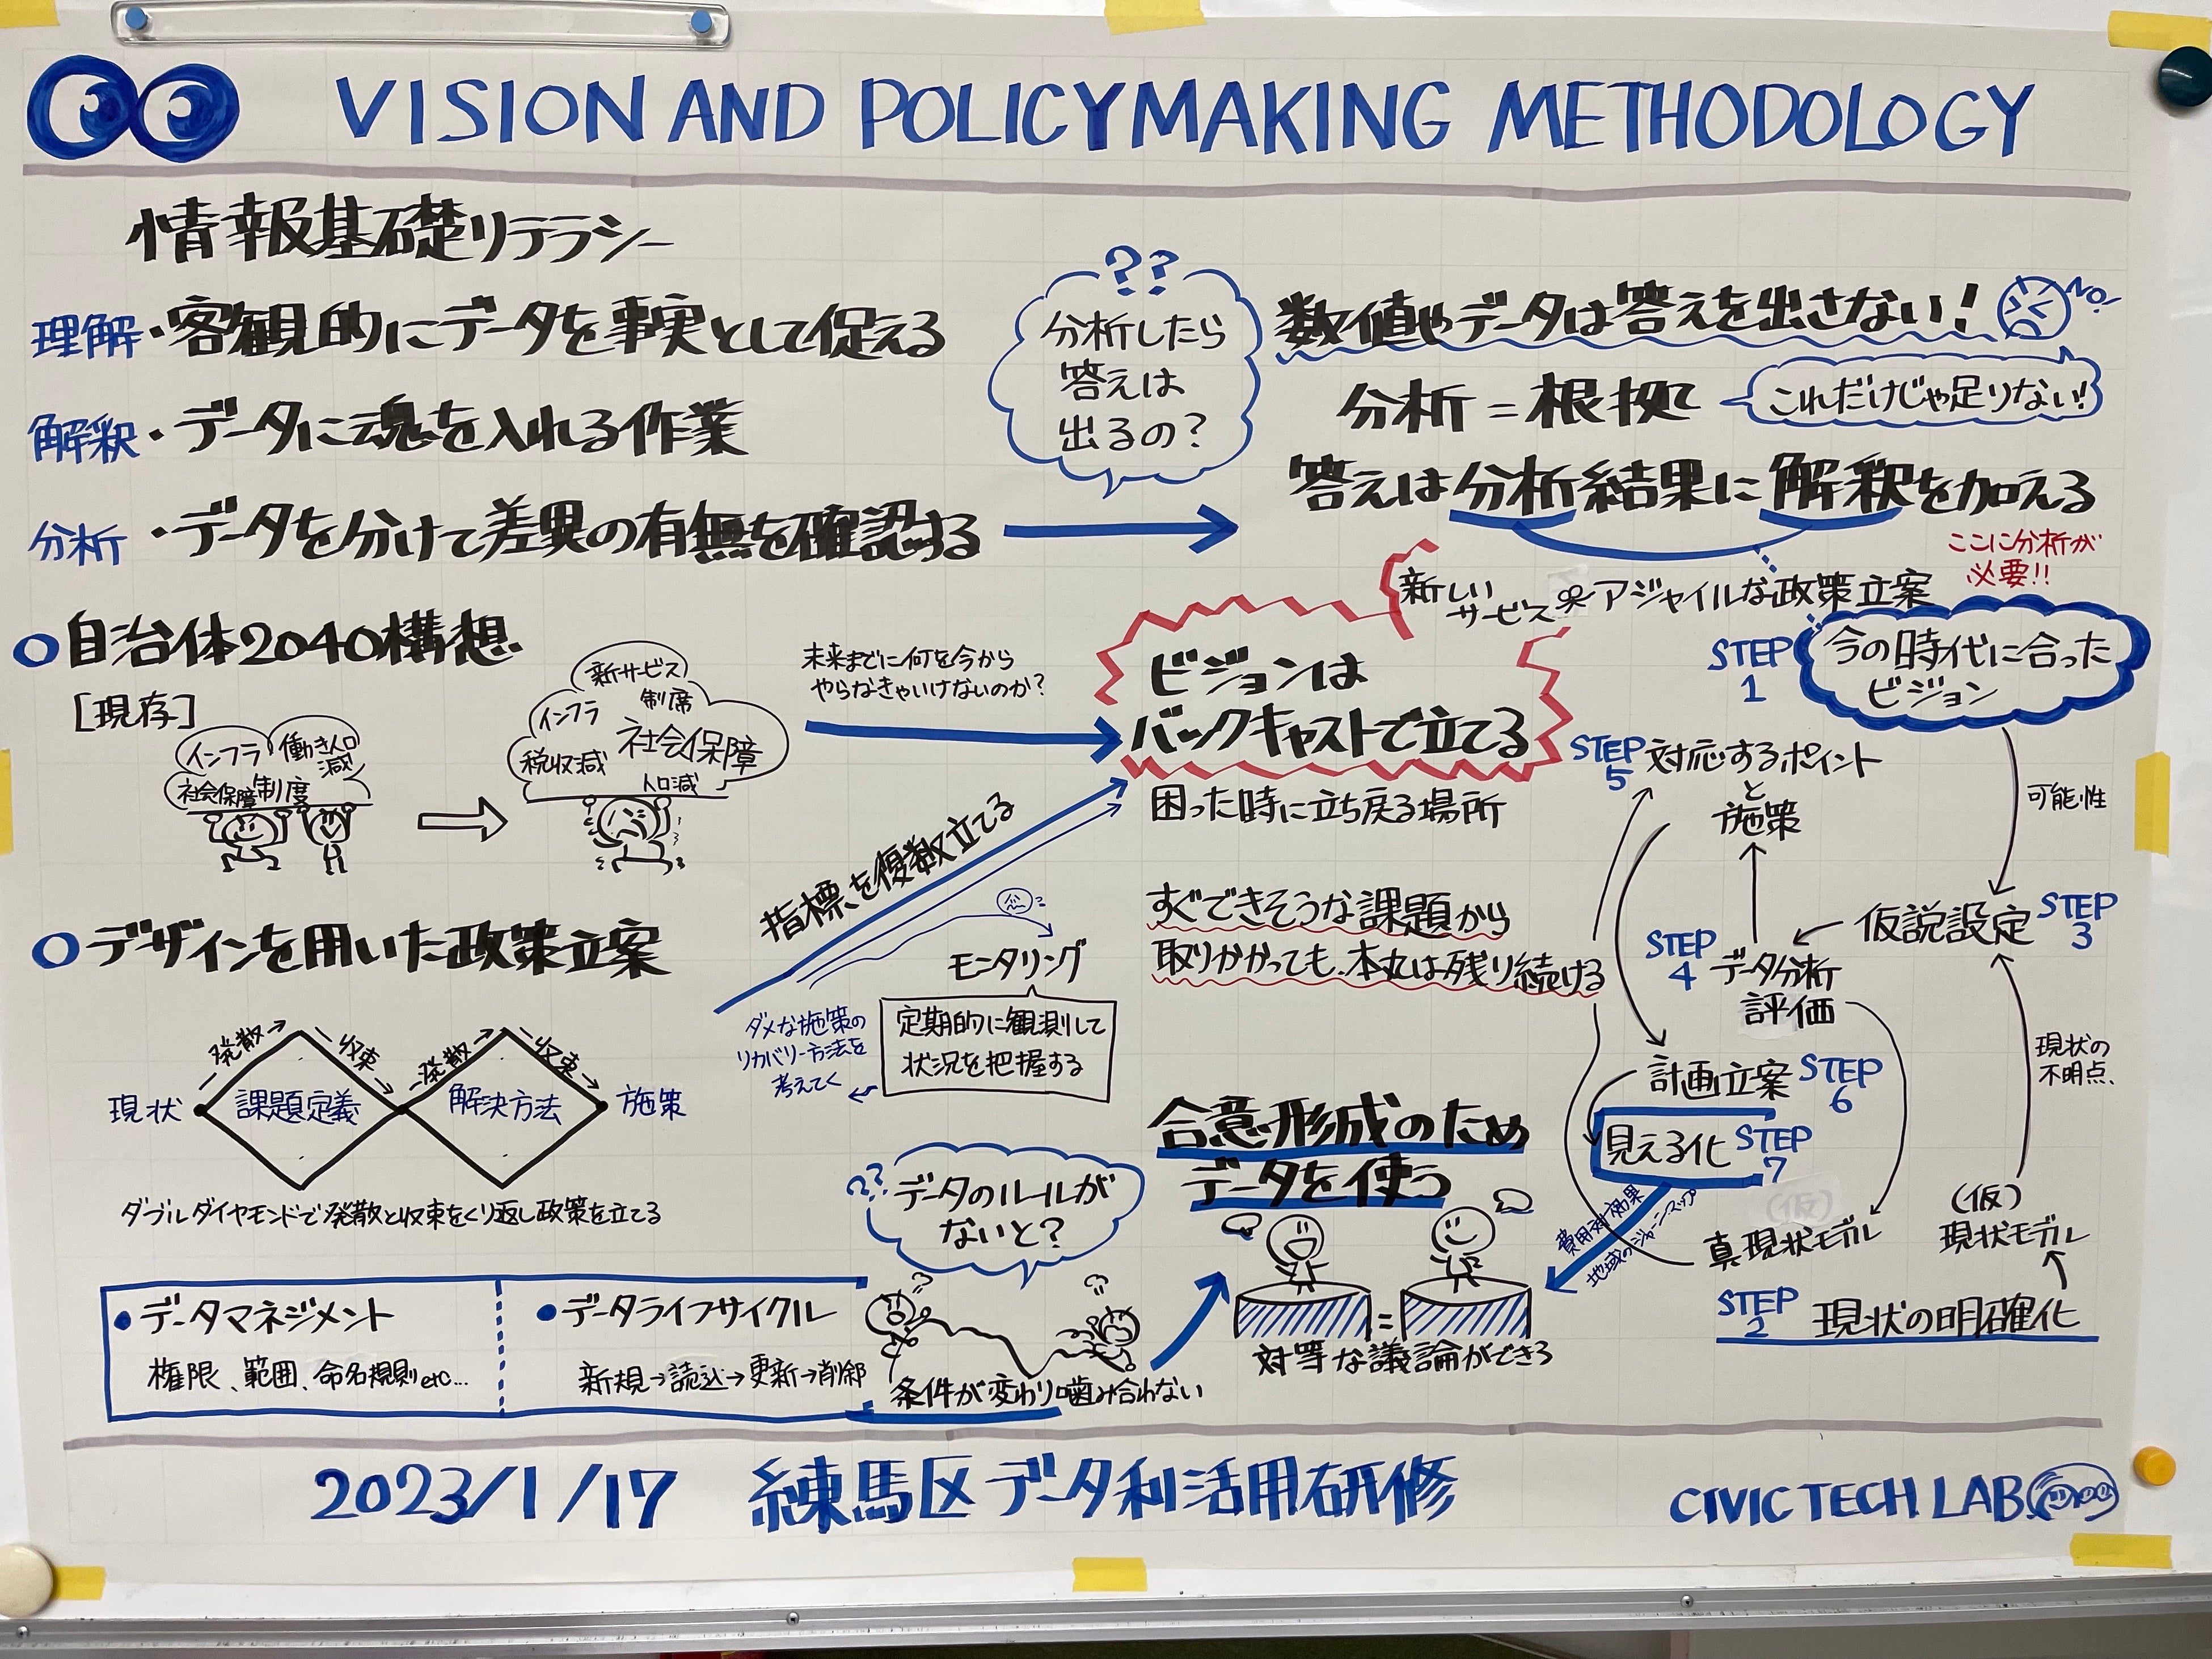 VISION AND POLICYMAKING METHODOLOGY
情報基礎リテラシー
理解・客観的にデータを事実として促える
解釈・データに魂を入れる作業
分析・データを分けて差異の有無を確認する
??
分析したら
答えは
出るの?
数値やデータは答えを出さない!
NO!
分析=根拠
これだけじゃ足りない!
答えは分析結果に解釈を加える
新しい
サービス
アジャイルな政策立案
ここに分析が
必要!!
自治体2040構想
[現存]
インフラ
働き人口
減
社会保障制度
新サービス
インフラ
制席
税収減
社会保障
人口減
未来までに何を今から
やらなきゃいけないのか?
ビジョンは
バックキャストで立てる
困った時に立ち戻る場所
指標を複数立てる
すぐできそうな課題から
取りかかっても、本丸は残り続ける
モンタリング
定期的に観測して
状況を把握する
ダメな施策の
リカバリー方法を
考えてく
デザインを用いた政策立案
発散
収束
発散
収束
現状
課題定義
解決方法
施策
ダブルダイヤモンドで発散と収束をくり返し政策を立てる
STEP
1
今の時代に合った
ビジョン
可能性
STEP
5
対応するポイント
と
施策
仮説設定
STEP
3
STEP
4
データ分析
評価
現状の
不明点、
計画立案
STEP
6
見える化
STEP
7
費用対効果
地域のジャーニーマップ
(仮)
真現状モデル
(仮)
現状モデル
STEP
2
現状の明確化
合意形成のため
データを使う
=
対等な議論ができる
??
データのルールが
ないと?
??
??
条件が変わり噛み合わない
・データマネジメント
権限、範囲、命名規則etc...
・データライフサイクル
新規→読込→更新→削除
2023/1/17 練馬区データ利活用研修
CIVIC TECH LAB